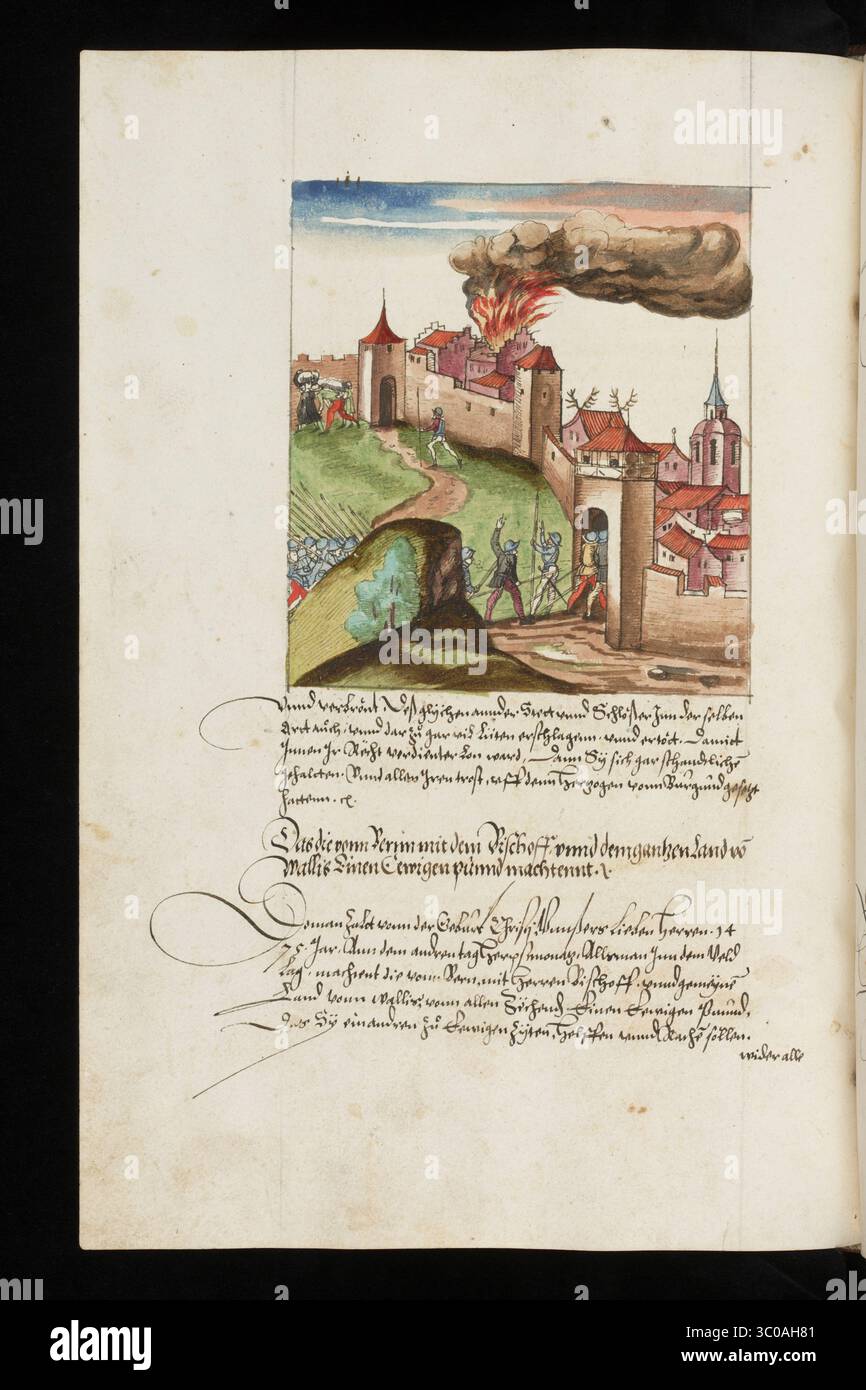 vnnd verbrönt Deßglychen annder Stett vnnd Schlösser Inn der selben
Artt auch, vnnd dar zů gar vil Lüten erschlagenn vnnd ertött. Damitt
Innen Ir Rächt verdienter Lon ward, Dann Sy sich gar schandtlichē
gehaltten. Vnnd allen Iren trost, vff denn Hertzogen vonn Burgund gesetzt
hattenn. ꝛc.
Das die vonn Bernn mit dem Bischoff vnnd dem gantzen Land vō
Wallis Einen Eewigen pünnd machtennt.
Do man Zalt vonn der Geburt Christi Vnnsers Lieben Herren. 14
75. Jar. Ann dem andren tag Herpstmonatz, Alls man Inn dem Veld
Lag. machent die vonn Bern, mit Herren Bischoff vnnd gemeynē
Land vonn Wallis, vonn allen Zechend Einen Eewigen Pünnd,
Das Sy einandren zů Eewigen Zyten, Helffen vnnd Rathen söllen.
wider alle
alamy
3C0AH81
www.alamy.com